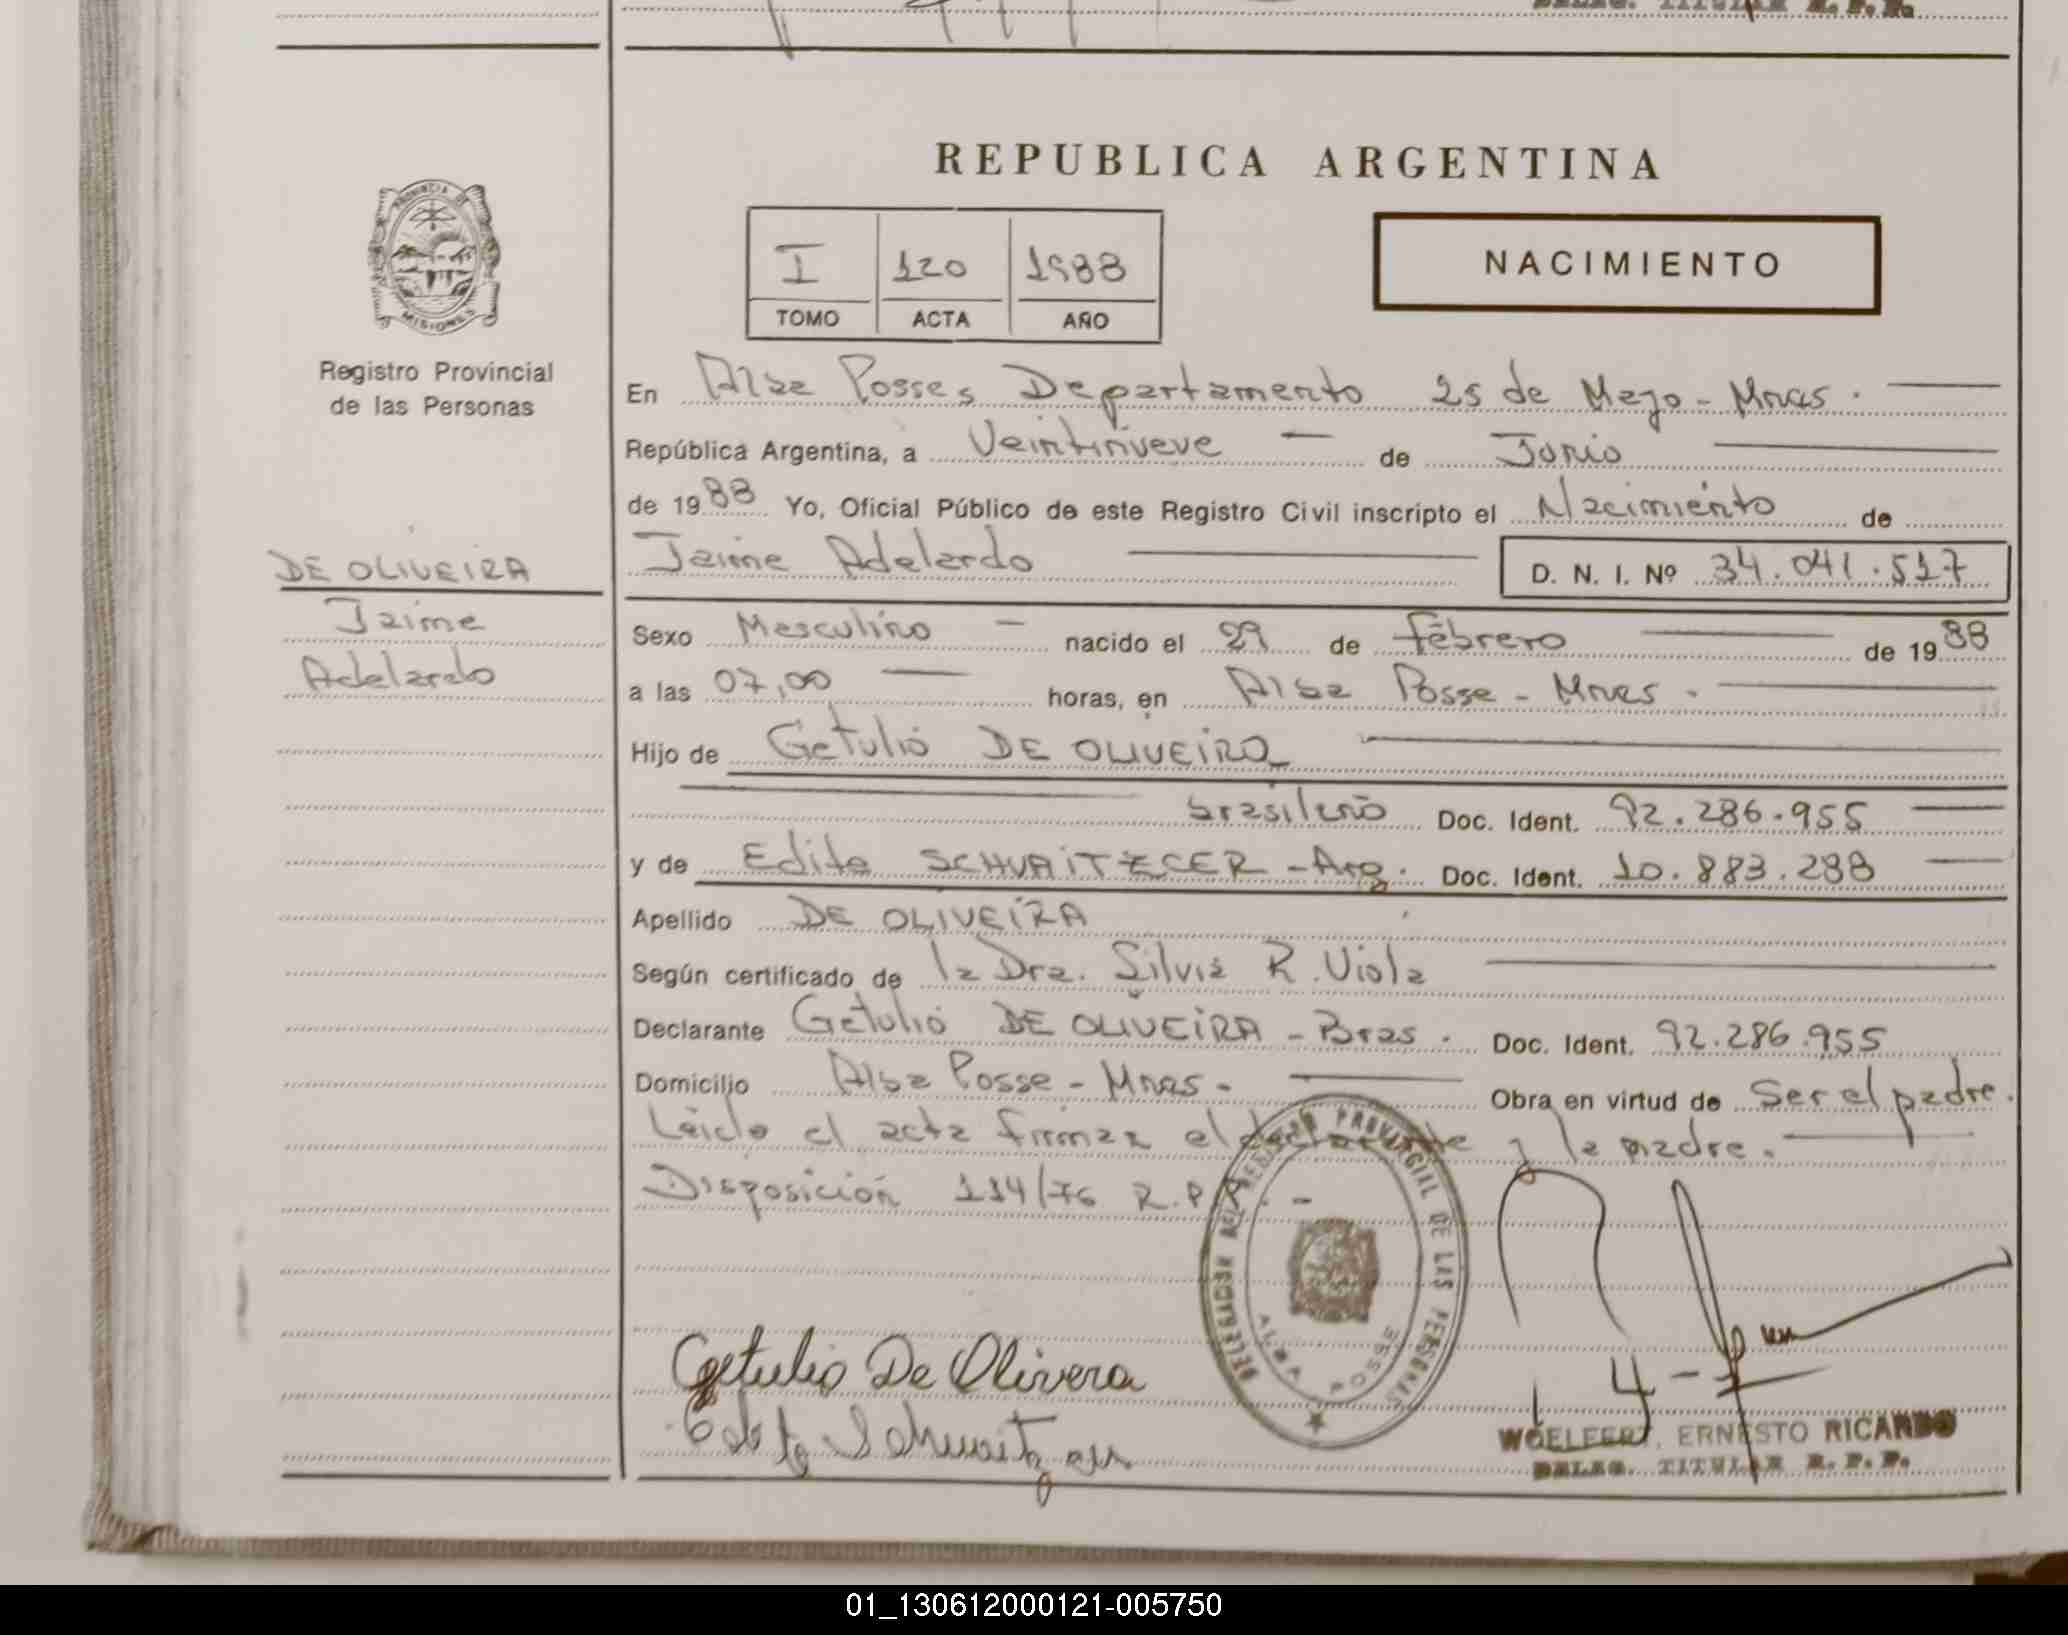 DELEG. TITULAR R. P. P.
REPUBLICA ARGENTINA
PROVINCIA DE
MISIONES
I 120 1988
TOMO ACTA AÑO
NACIMIENTO
Registro Provincial
de las Personas
En Alba Posse, Departamento 25 de Mayo - Mnes.
República Argentina, a Veintinueve de Junio
de 1988 Yo, Oficial Público de este Registro Civil inscripto el Nacimiento de
DE OLIVEIRA
Jaime
Adelardo
Jaime Adelardo D. N. I. Nº 34.041.517
Sexo Masculino nacido el 29 de febrero de 1988
a las 07,00 horas, en Alba Posse - Mnes.
Hijo de Getulio DE OLIVEIRA
brasileño Doc. Ident. 92.286.955
y de Edita SCHVAITZGER - Arg. Doc. Ident. 10.883.288
Apellido DE OLIVEIRA
Según certificado de la Dra. Silvia R. Viola
Declarante Getulio DE OLIVEIRA - Bras. Doc. Ident. 92.286.955
Domicilio Alba Posse - Mnes. Obra en virtud de Ser el padre.
Leido el acta firman el declarante y la madre.
Disposición 114/76 R.P.
DELEGACION DEL REGISTRO PROVINCIAL DE LAS PERSONAS
ALBA POSSE
Getulio De Olivera
Edita
WOELFERT, ERNESTO RICARDO
DELEG. TITULAR R. P. P.
01_130612000121-005750